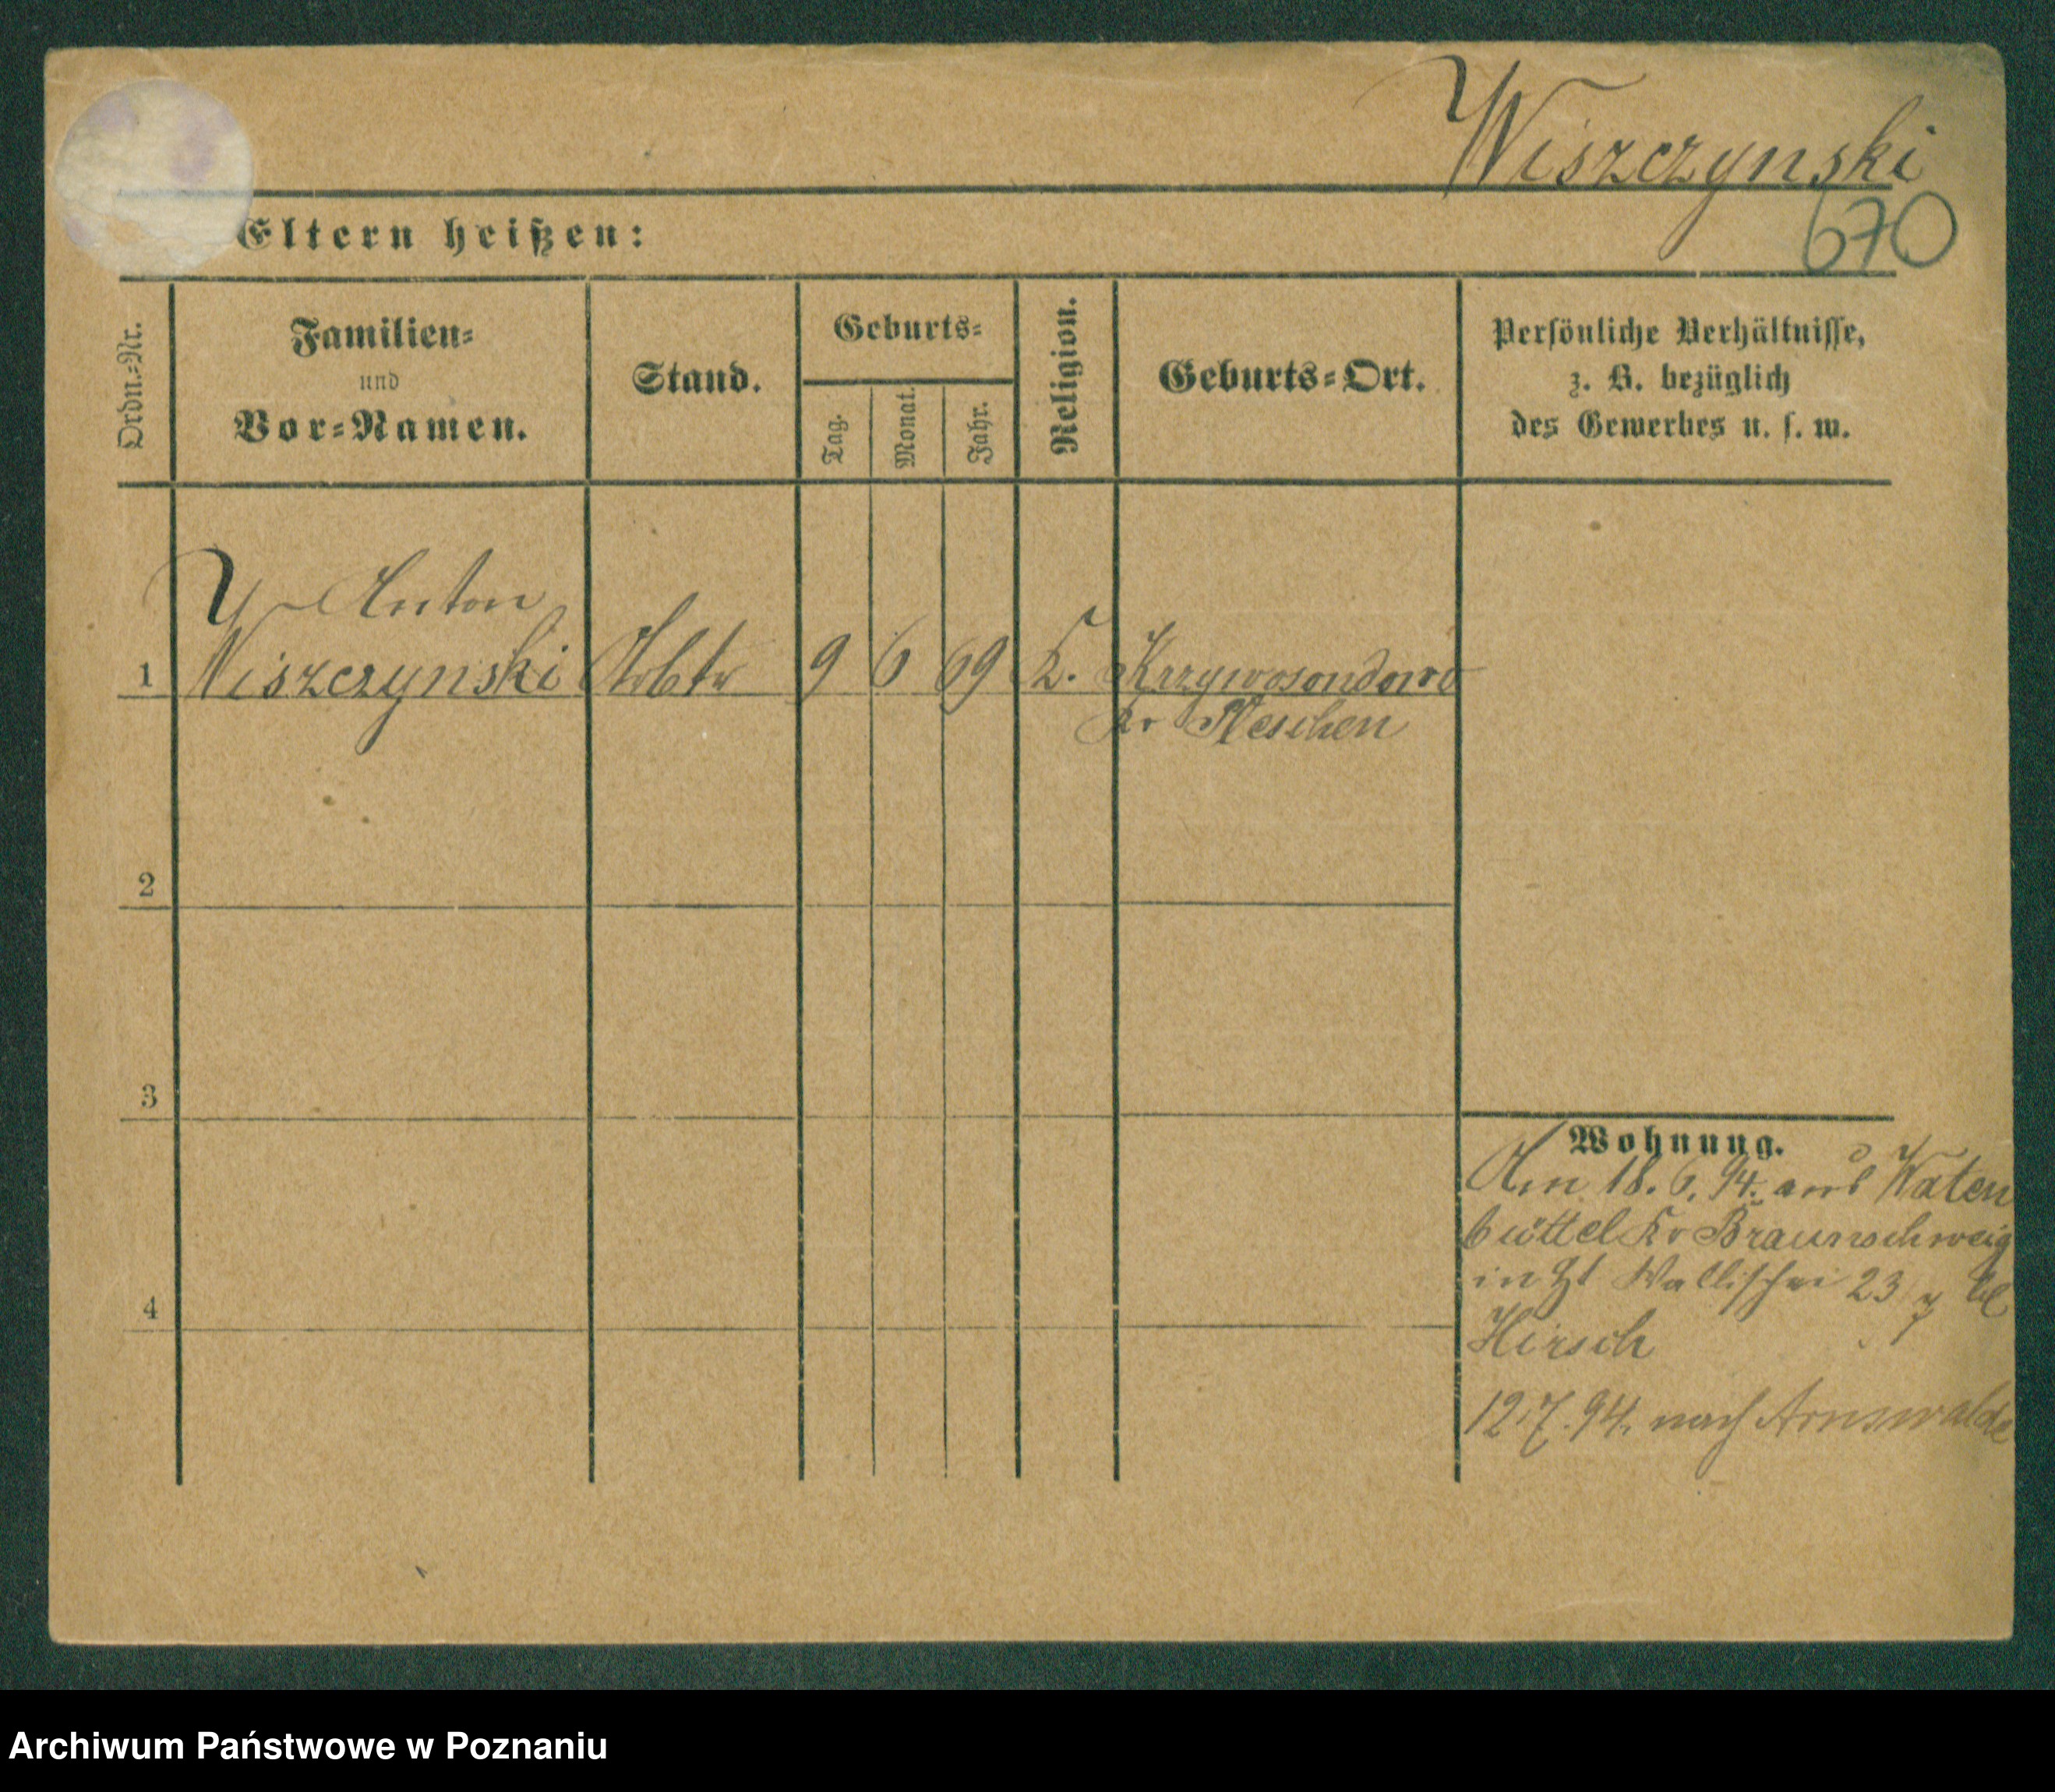 Wiszczynski
670
Eltern heißen:
Ordn.-Nr.
Familien-
und
Vor-Namen.
Stand.
Geburts-
Tag.
Monat.
Jahr.
Religion.
Geburts-Ort.
Persönliche Verhältnisse,
z. B. bezüglich
des Gewerbes u. s. w.
Anton
1 Wiszczynski Arbtr 9 6 69 K. Krzywosondowo
Kr Pleschen
2
3
4
Wohnung.
Am 18. 6. 94. aus Waten
büttel Kr Braunschweig
in Zt Wallischei 23 bl
Hirsch
12.7.94. nach Arnswalde
Archiwum Państwowe w Poznaniu